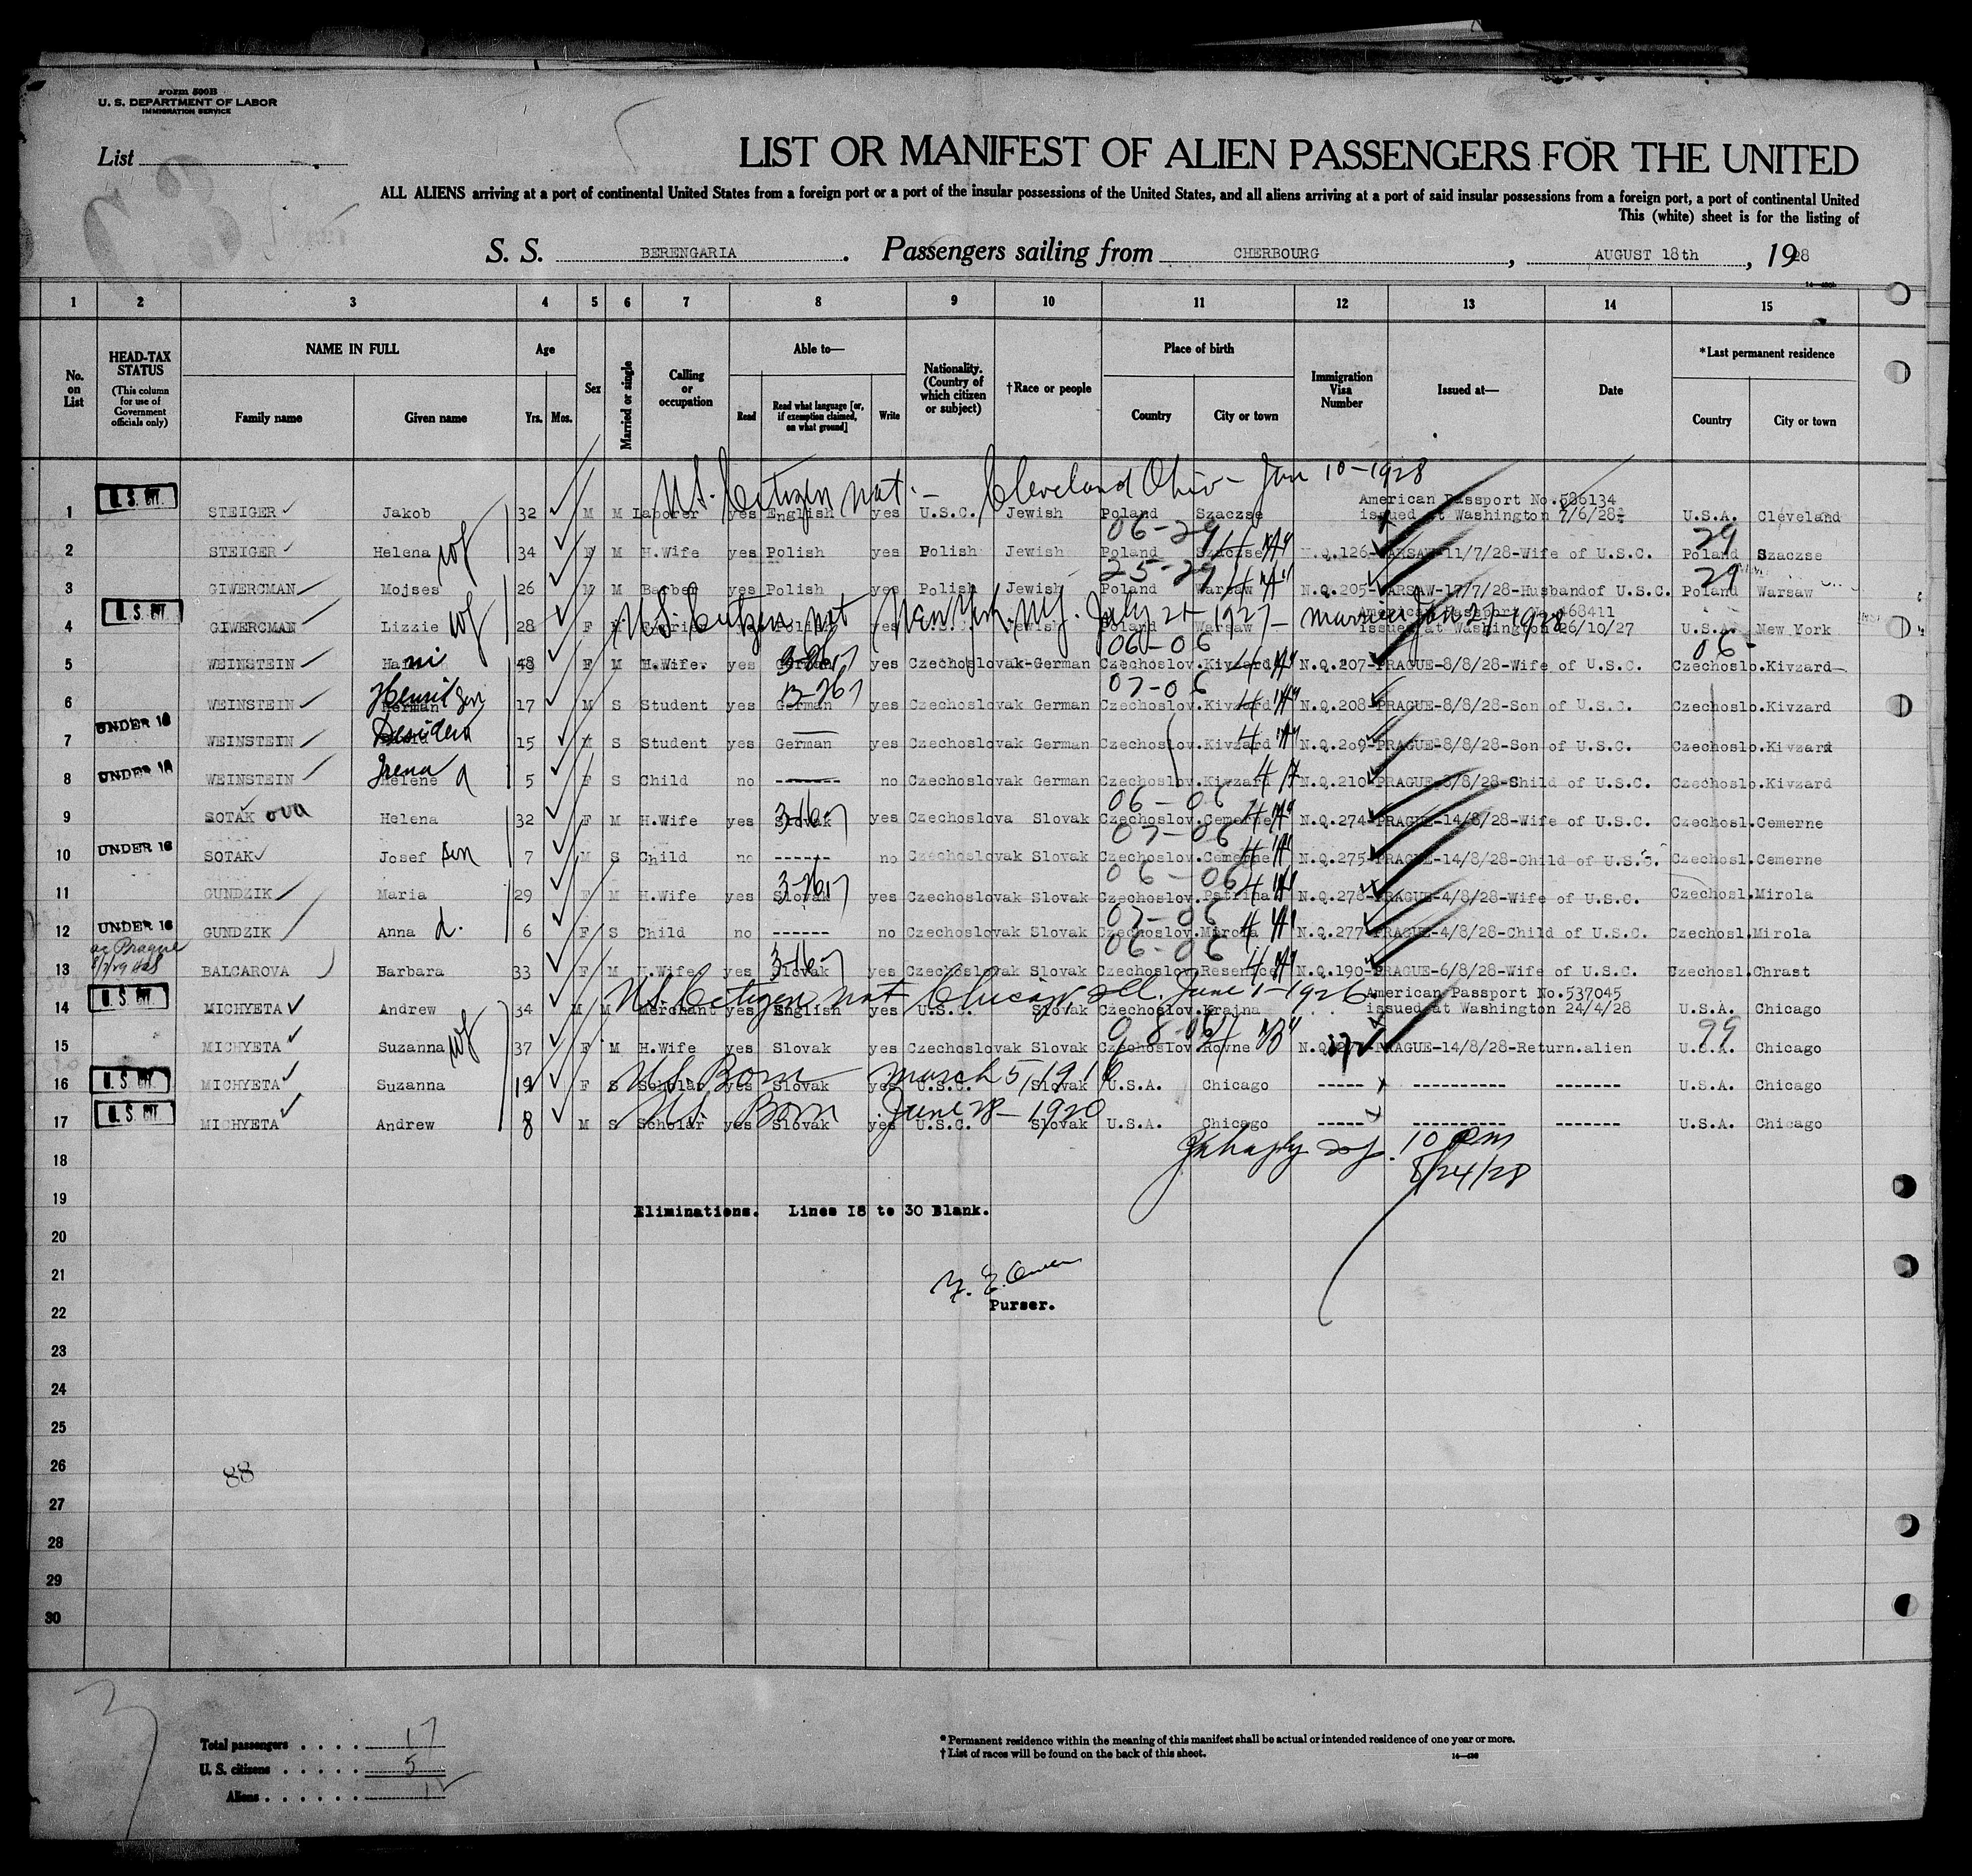 Form 500B
U. S. DEPARTMENT OF LABOR
IMMIGRATION SERVICE
List
LIST OR MANIFEST OF ALIEN PASSENGERS FOR THE UNITED
ALL ALIENS arriving at a port of continental United States from a foreign port or a port of the insular possessions of the United States, and all aliens arriving at a port of said insular possessions from a foreign port, a port of continental United
This (white) sheet is for the listing of
S. S. BERENGARIA. Passengers sailing from CHERBOURG, AUGUST 18th, 1928
1 2 3 4 5 6 7 8 9 10 11 12 13 14 15
No. on List
HEAD-TAX STATUS (This column for use of Government officials only)
NAME IN FULL
Family name Given name
Age
Yrs. Mos.
Sex
Married or single
Calling or occupation
Able to—
Read Read what language [or, if exemption claimed, on what ground] Write
Nationality. (Country of which citizen or subject)
†Race or people
Place of birth
Country City or town
Immigration Visa Number
Issued at—
Date
*Last permanent residence
Country City or town
U.S. Citizen nat. - Cleveland Ohio - Jan 10-1928
American Passport No.586134
1 U. S. CIT. STEIGER Jakob 32 M M Laborer yes English yes U.S.C. Jewish Poland Szaczse issued at Washington 7/6/28 U.S.A. Cleveland
06-29 29
2 STEIGER Helena wf 34 F M H.Wife yes Polish yes Polish Jewish Poland Szaczse N.Q.126-WARSAW-11/7/28-Wife of U.S.C. Poland Szaczse
25-29 29
3 GIWERCMAN Mojses 26 M M Barber yes Polish yes Polish Jewish Poland Warsaw N.Q.205-WARSAW-17/7/28-Husbandof U.S.C. Poland Warsaw
U.S. Citizen nat New York, N.Y. July 21-1927- married Jan 27-1928
American Passport No.468411
4 U. S. CIT. GIWERCMAN Lizzie wf 28 F yes Jewish Poland Warsaw issued at Washington 26/10/27 U.S.A. New York
06-06 06-
5 WEINSTEIN Hani 48 F M H.Wife. yes German yes Czechoslovak-German Czechoslov.Kivzard N.Q.207-PRAGUE-8/8/28-Wife of U.S.C. Czechoslo.Kivzard
07-06
6 WEINSTEIN Herman Son 17 M S Student yes German yes Czechoslovak German Czechoslov.Kivzard N.Q.208-PRAGUE-8/8/28-Son of U.S.C. Czechoslo.Kivzard
7 UNDER 16 WEINSTEIN 15 M S Student yes German yes Czechoslovak German Czechoslov.Kivzard N.Q.209-PRAGUE-8/8/28-Son of U.S.C. Czechoslo.Kivzard
8 UNDER 16 WEINSTEIN Irena Helene d 5 F S Child no ------- no Czechoslovak German Czechoslov.Kivzard N.Q.210-PRAGUE-8/8/28-Child of U.S.C. Czechoslo.Kivzard
06-06
9 SOTAK ova Helena 32 F M H.Wife yes Slovak yes Czechoslova Slovak Czechoslov.Cemerne N.Q.274-PRAGUE-14/8/28-Wife of U.S.C. Czechosl.Cemerne
07-06
10 UNDER 16 SOTAK Josef Son 7 M S Child no ------ no Czechoslovak Slovak Czechoslov.Cemerne N.Q.275-PRAGUE-14/8/28-Child of U.S.C. Czechosl.Cemerne
06-06
11 GUNDZIK Maria 29 F M H.Wife yes Slovak yes Czechoslovak Slovak Czechoslov. N.Q.276-PRAGUE-4/8/28-Wife of U.S.C. Czechosl.Mirola
07-06
12 UNDER 16 GUNDZIK Anna d. 6 F S Child no ------ no Czechoslovak Slovak Czechoslov.Mirola N.Q.277-PRAGUE-4/8/28-Child of U.S.C. Czechosl.Mirola
06-06
13 BALCAROVA Barbara 33 F M H.Wife yes Slovak yes Czechoslovak Slovak Czechoslov. N.Q.190-PRAGUE-6/8/28-Wife of U.S.C. Czechosl.Chrast
U.S. Citizen nat Chicago, Ill. June 1-1926 American Passport No.537045
14 U. S. CIT. MICHYETA Andrew 34 M M Merchant yes English yes U.S.C. Slovak Czechoslov.Krajna issued at Washington 24/4/28 U.S.A. Chicago
99
15 MICHYETA Suzanna wf 37 F M H.Wife yes Slovak yes Czechoslovak Slovak Czechoslov Rovne PRAGUE-14/8/28-Return.alien U.S.A. Chicago
US Born March 5, 1916
16 U. S. CIT. MICHYETA Suzanna 12 F S Scholar yes Slovak yes U.S.C. Slovak U.S.A. Chicago ----- ---------- ------- U.S.A. Chicago
US. Born June 28-1920
17 U. S. CIT. MICHYETA Andrew 8 M S Scholar yes Slovak yes U.S.C. Slovak U.S.A. Chicago ----- ---------- ------- U.S.A. Chicago
10 pm
18
8/24/28
19
Eliminations. Lines 18 to 30 Blank.
20
21
22
Purser.
23
24
25
26
88
27
28
29
30
Total passengers . . . . 17
U. S. citizens . . . . . 5
Aliens . . . . . . 12
*Permanent residence within the meaning of this manifest shall be actual or intended residence of one year or more.
†List of races will be found on the back of this sheet.